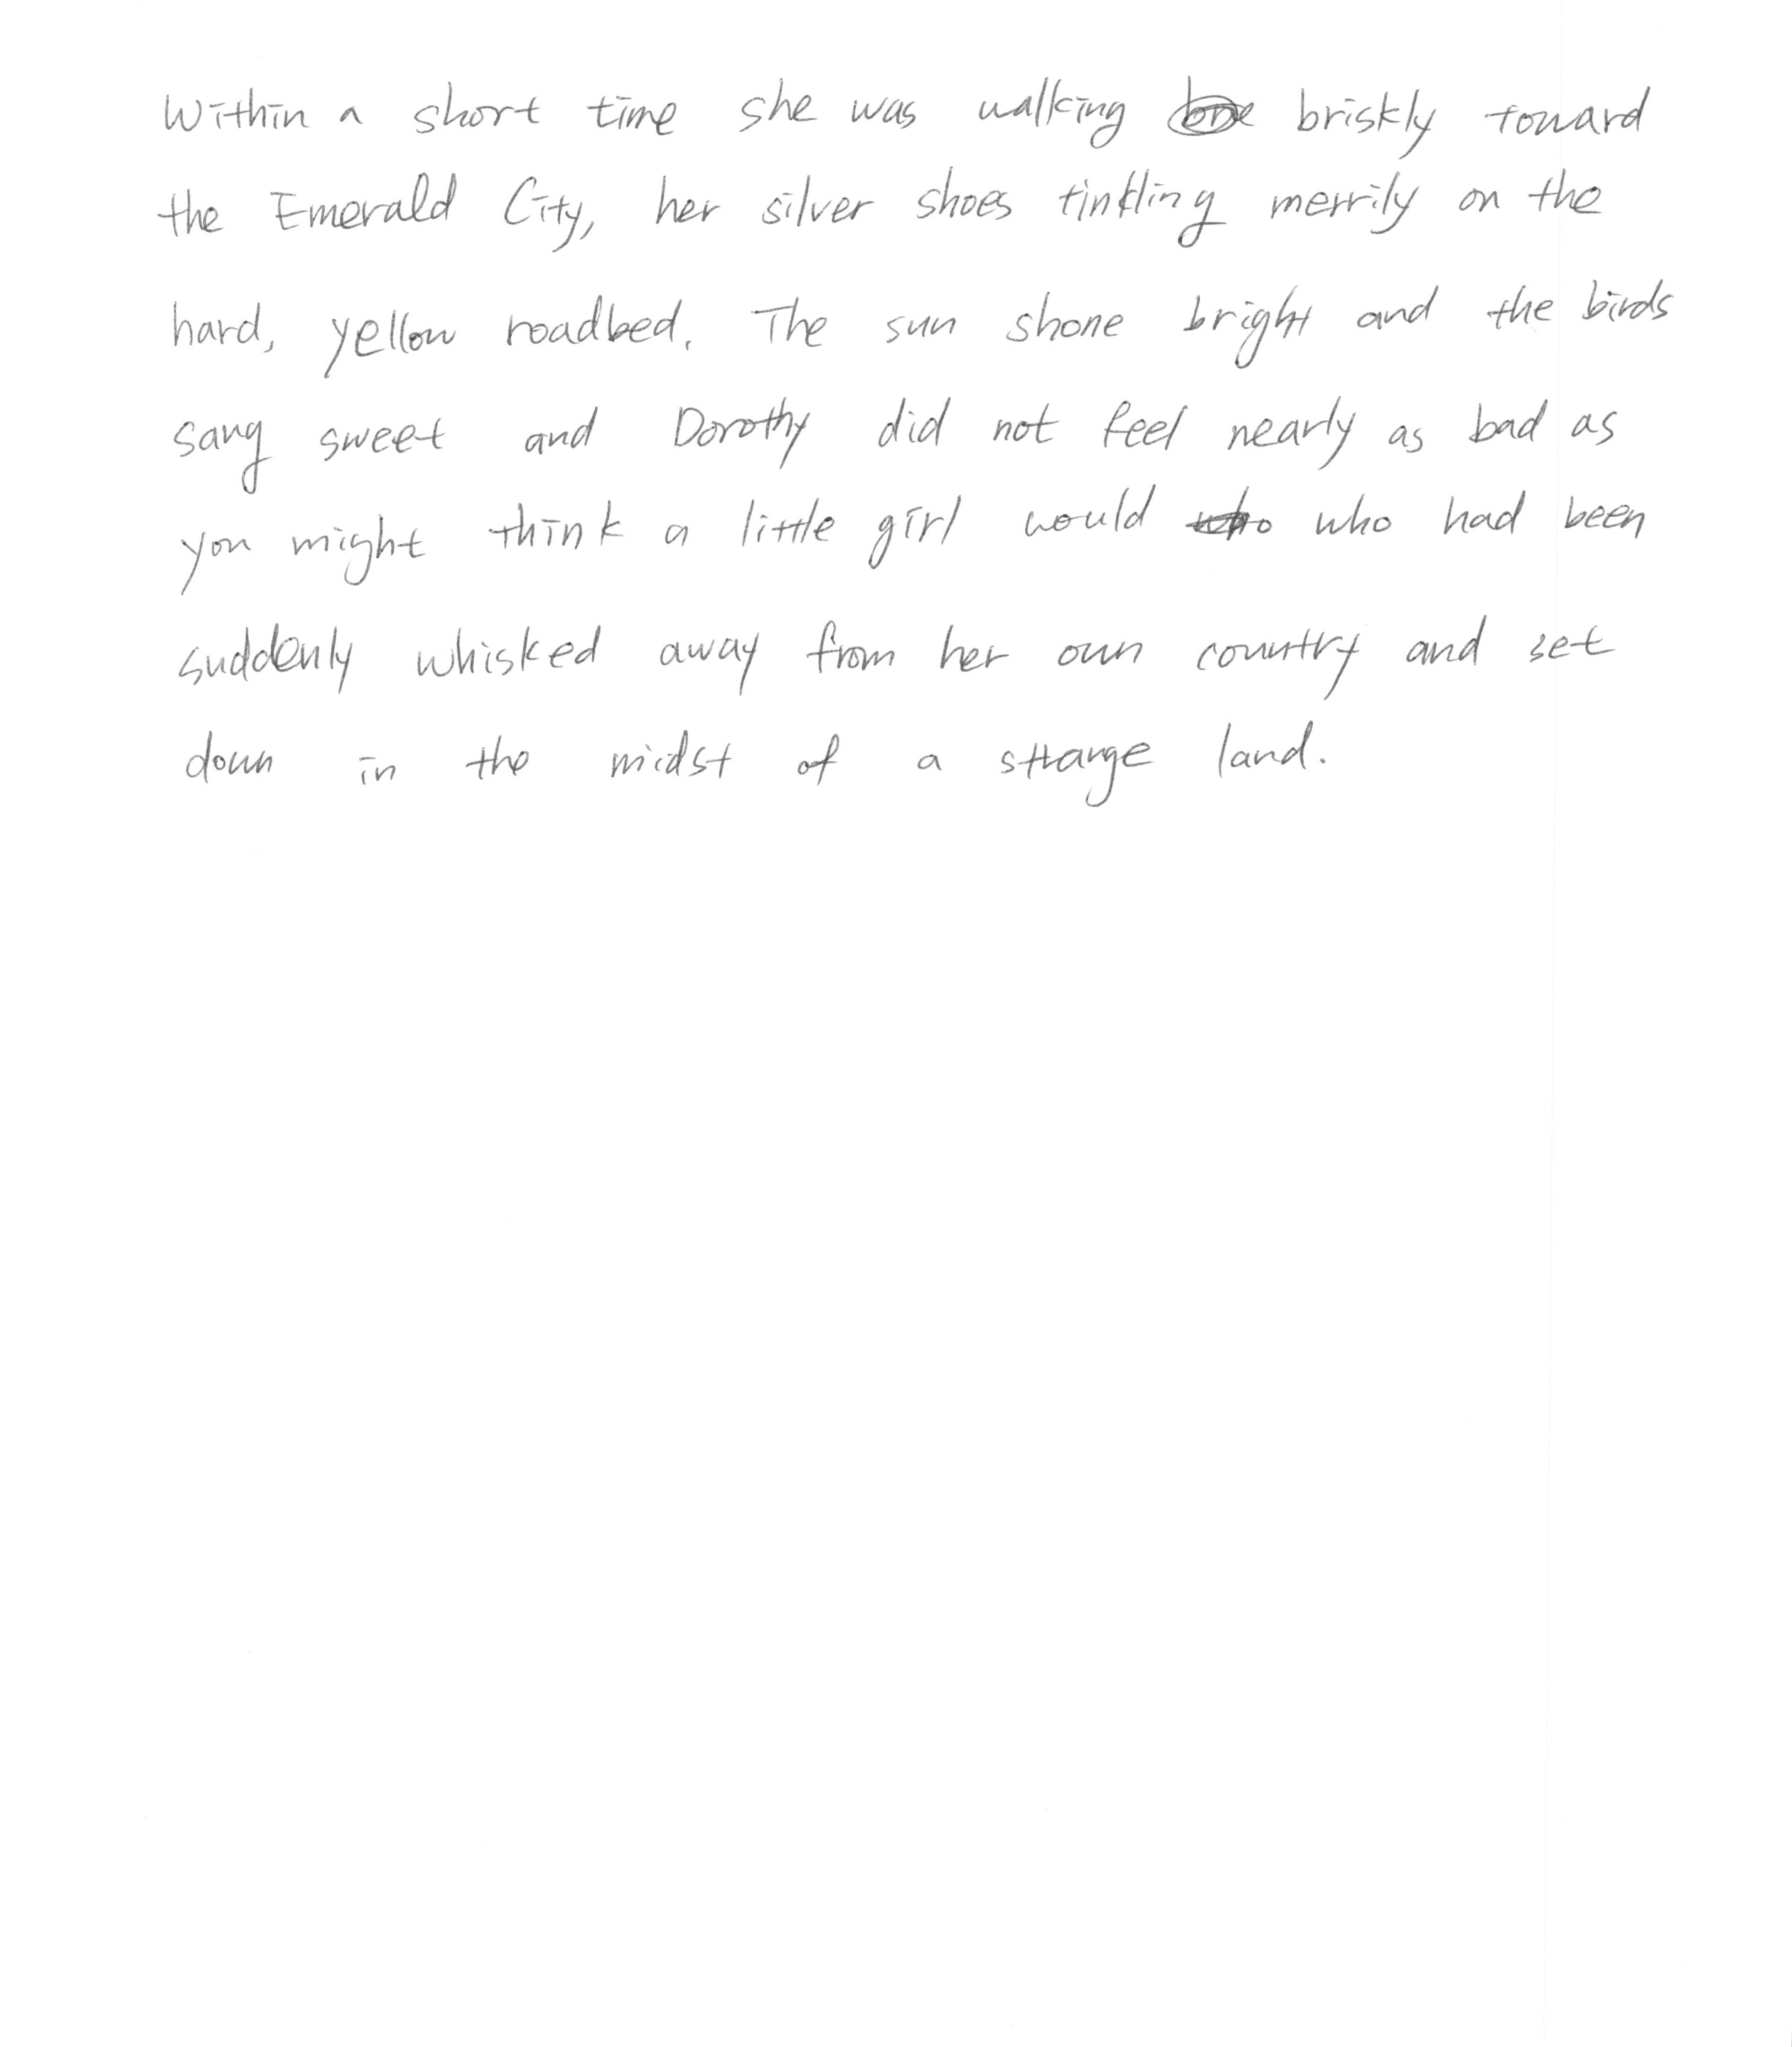 Within a short time she was walking briskly toward
the Emerald City, her silver shoes tinkling merrily on the
hard, yellow roadbed. The sun shone bright and the birds
sang sweet and Dorothy did not feel nearly as bad as
you might think a little girl would who who had been
suddenly whisked away from her own country and set
down in the midst of a strange land.